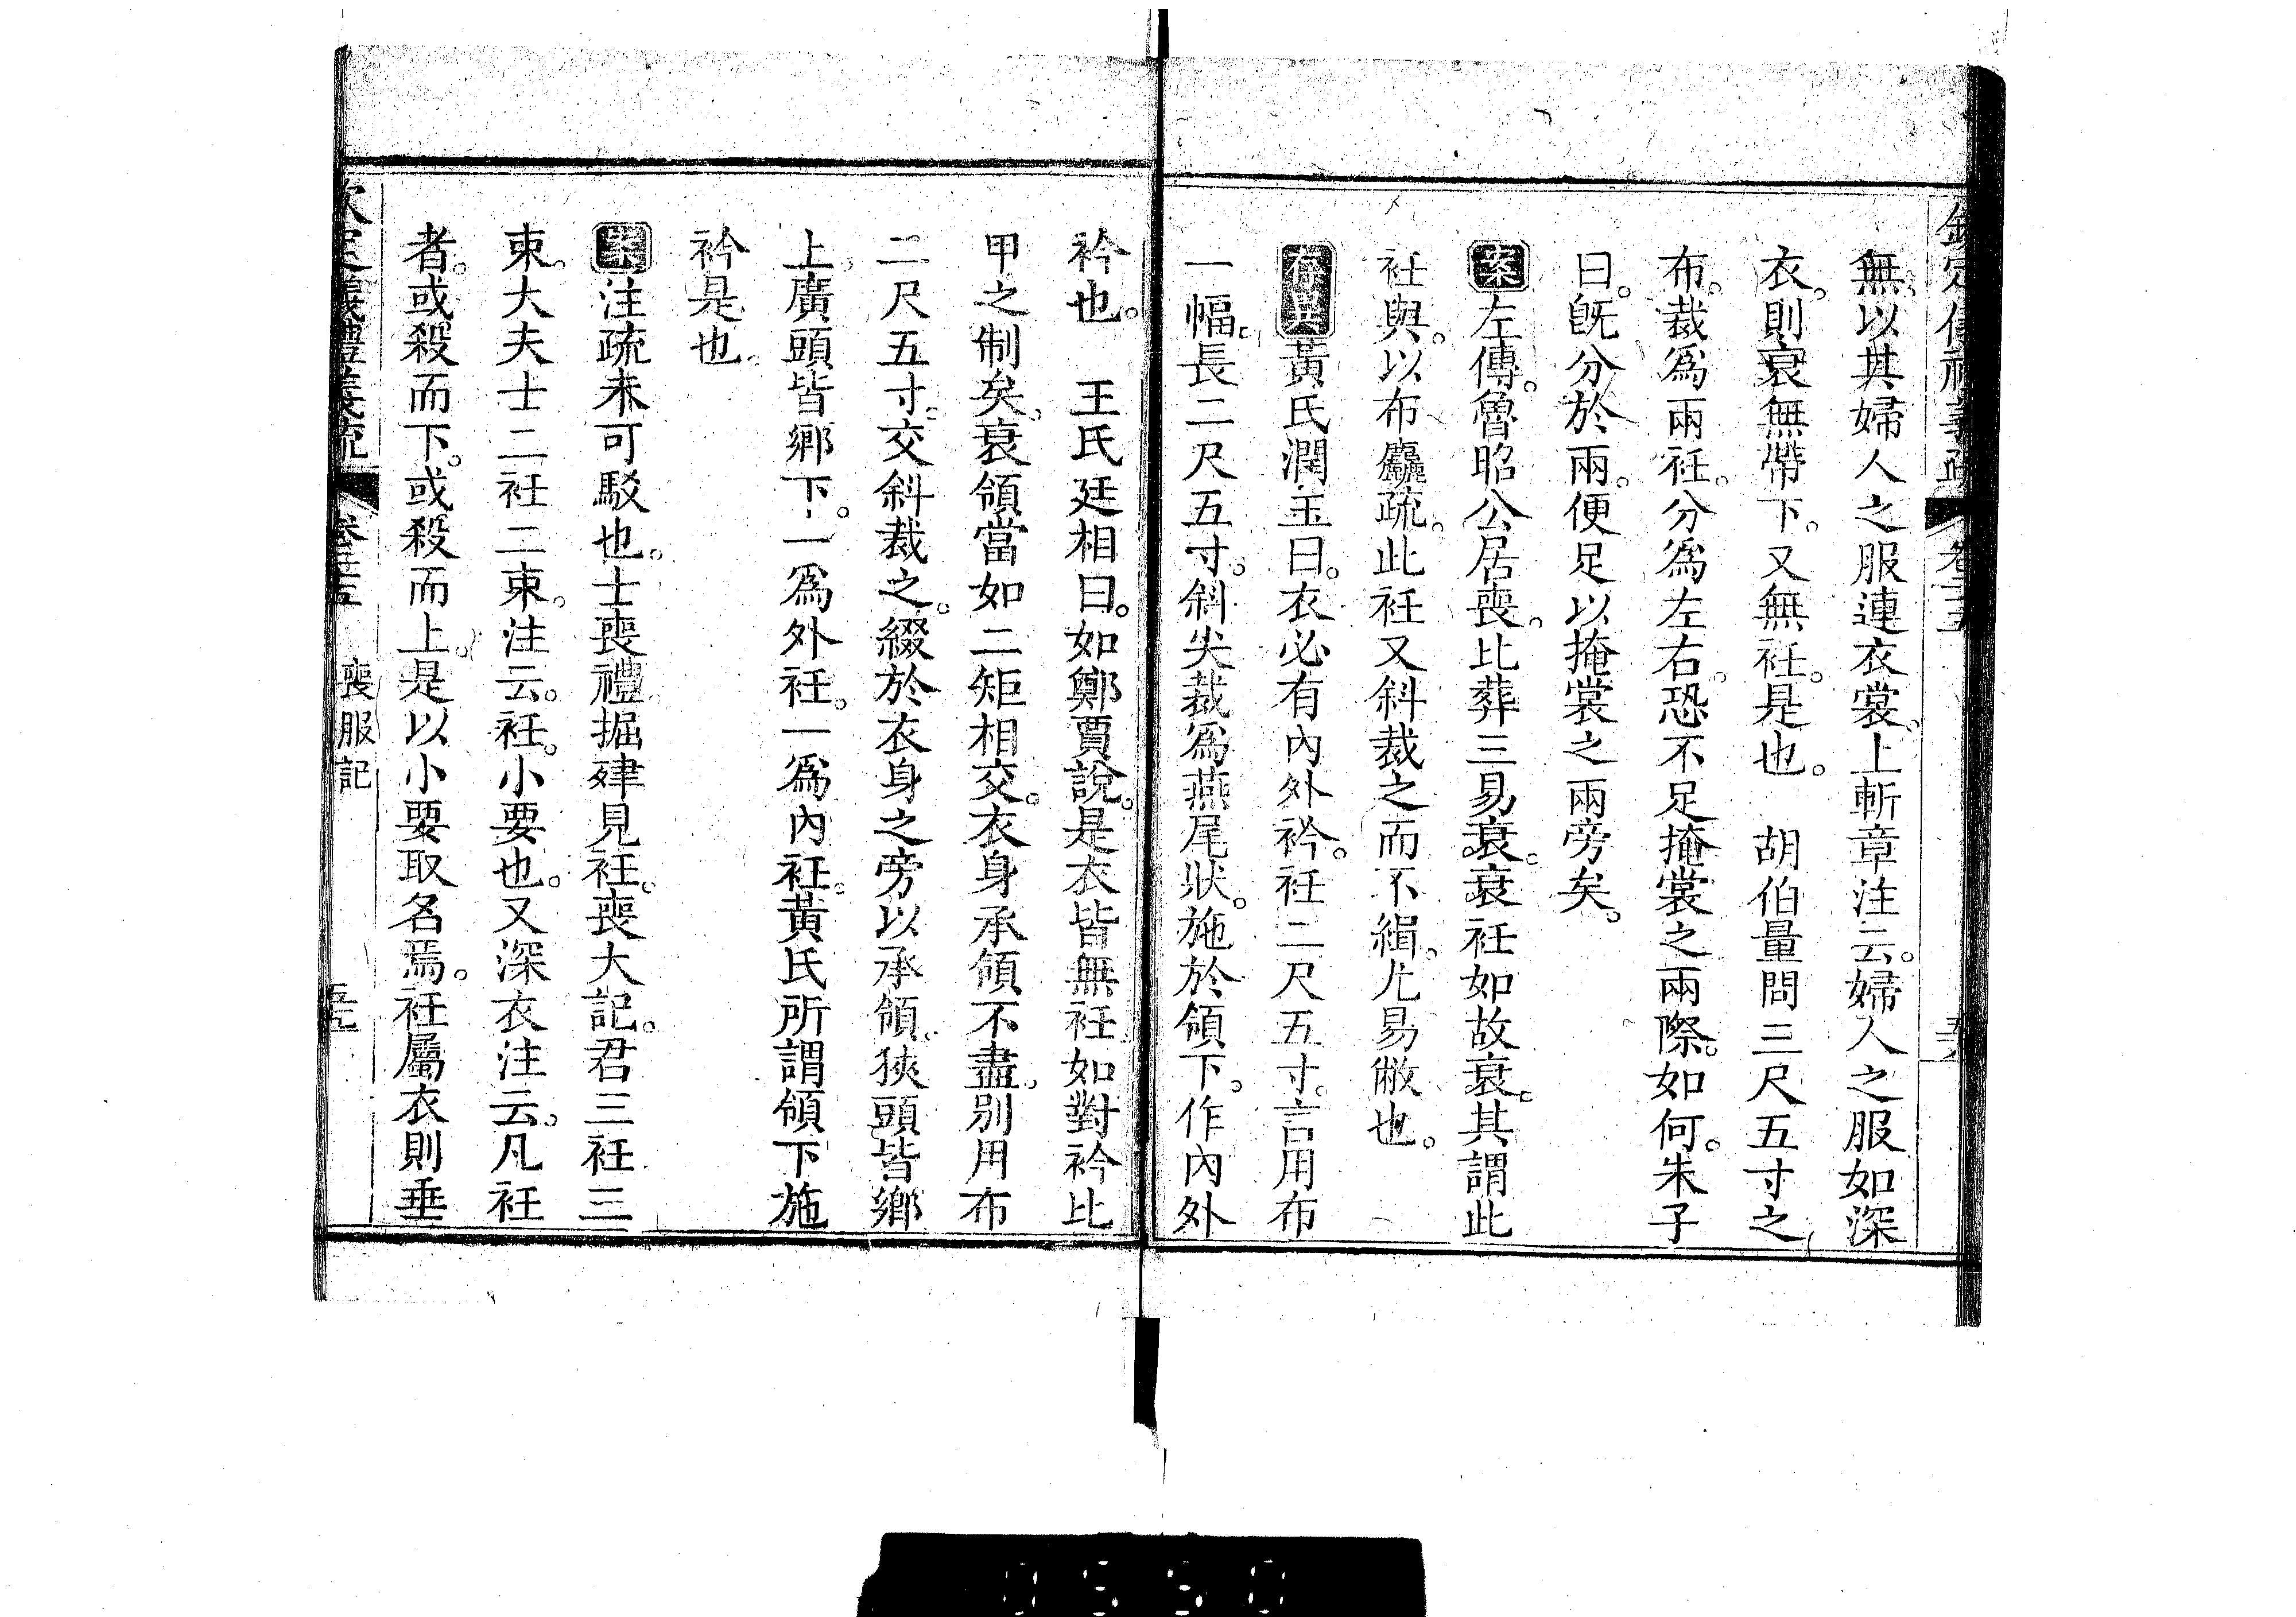 欽定儀禮義疏 卷二五 五六
無。以其婦人之服連衣裳。上斬章注云。婦人之服如深
衣。則衰無帶下。又無衽。是也。 胡伯量問三尺五寸之
布。裁爲兩衽。分爲左右。恐不足掩裳之兩際。如何。朱子
曰。旣分於兩。便足以掩裳之兩旁矣。
案左傳。魯昭公居喪。比葬三易衰。衰衽如故衰。其謂此
衽與。以布麤疏。此衽又斜裁之而不緝。尤易敝也。
存異黃氏潤玉曰。衣必有內外衿。衽二尺五寸。言用布
一幅。長二尺五寸。斜尖裁爲燕尾狀。施於領下。作內外
衿也。 王氏廷相曰。如鄭賈說。是衣皆無衽如對衿比
甲之制矣。衰領當如二矩相交。衣身承領不盡。別用布
二尺五寸。交斜裁之。綴於衣身之旁以承領。狹頭皆鄉
上。廣頭皆鄉下。一爲外衽。一爲內衽。黃氏所謂領下施
衿是也。
案注疏未可駁也。士喪禮掘肂見衽。喪大記。君三衽三
束。大夫士二衽二束。注云。衽。小要也。又深衣注云。凡衽
者。或殺而下。或殺而上。是以小要取名焉。衽屬衣則垂
欽定儀禮義疏 卷二五 喪服記
0550